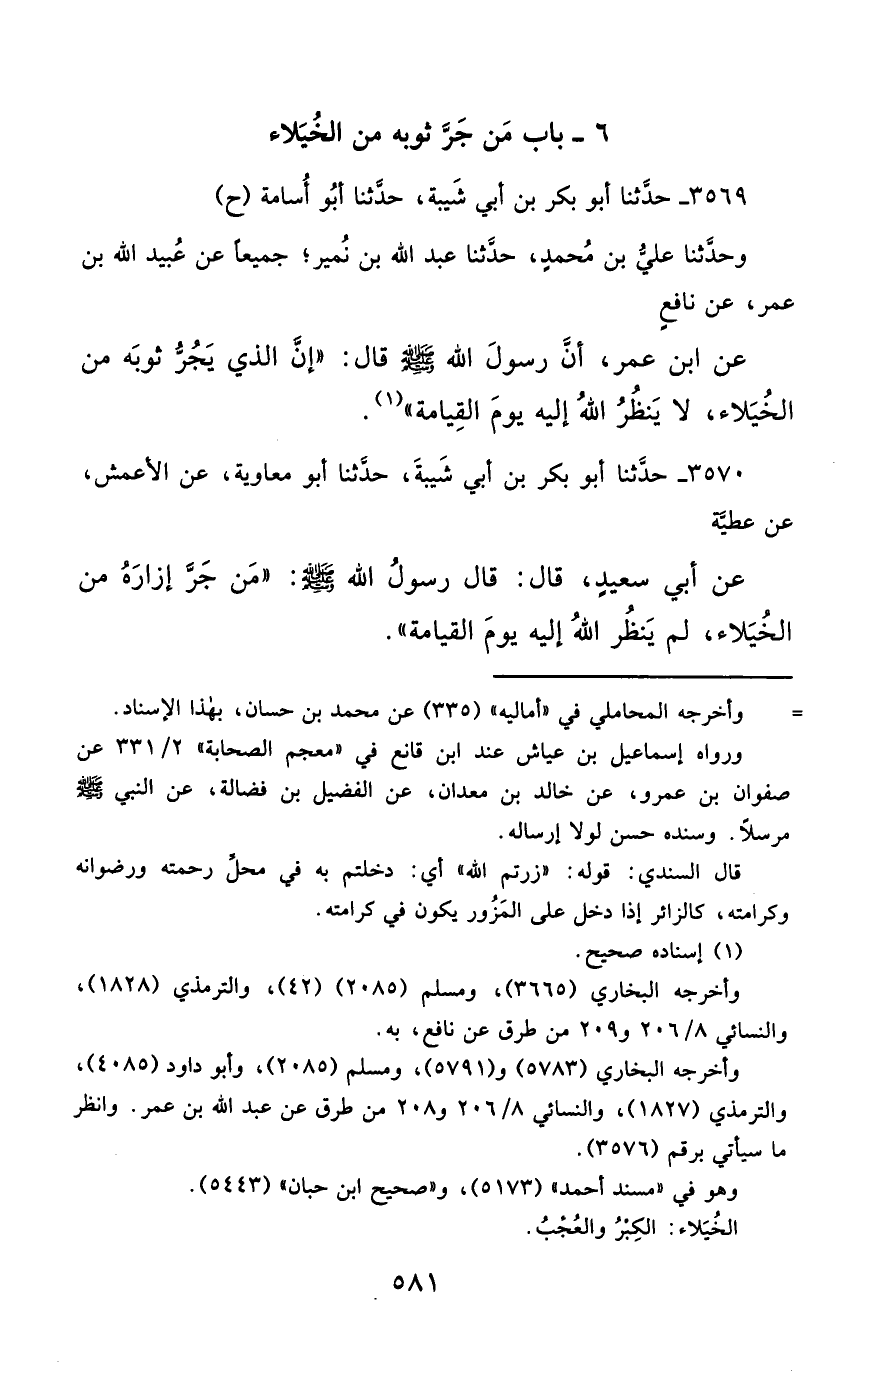 ٦ - باب مَن جَرَّ ثوبه من الخُيَلاء
٣٥٦٩ـ حدَّثنا أبو بكر بن أبي شَيبة، حدَّثنا أبُو أُسامة (ح)
وحدَّثنا عليُّ بن مُحمدٍ، حدَّثنا عبد الله بن نُمير؛ جميعاً عن عُبيد الله بن
عمر، عن نافعٍ
عن ابن عمر، أنَّ رسولَ الله ﷺ قال: «إنَّ الذي يَجُرُّ ثوبَه من
الخُيَلاء، لا يَنظُرُ اللهُ إليه يومَ القِيامة»(١).
٣٥٧٠ـ حدَّثنا أبو بكر بن أبي شَيبةَ، حدَّثنا أبو معاوية، عن الأعمش،
عن عطيَّة
عن أبي سعيدٍ، قال: قال رسولُ الله ﷺ: «مَن جَرَّ إزارَهُ من
الخُيَلاء، لم يَنظُر اللهُ إليه يومَ القيامة».
= وأخرجه المحاملي في «أماليه» (٣٣٥) عن محمد بن حسان، بهٰذا الإسناد.
ورواه إسماعيل بن عياش عند ابن قانع في «معجم الصحابة» ٣٣١/٢ عن
صفوان بن عمرو، عن خالد بن معدان، عن الفضيل بن فضالة، عن النبي ﷺ
مرسلاً. وسنده حسن لولا إرساله.
قال السندي: قوله: «زرتم الله» أي: دخلتم به في محلِّ رحمته ورضوانه
وكرامته، كالزائر إذا دخل على المَزُور يكون في كرامته.
(١) إسناده صحيح.
وأخرجه البخاري (٣٦٦٥)، ومسلم (٢٠٨٥) (٤٢)، والترمذي (١٨٢٨)،
والنسائي ٢٠٦/٨ و٢٠٩ من طرق عن نافع، به.
وأخرجه البخاري (٥٧٨٣) و(٥٧٩١)، ومسلم (٢٠٨٥)، وأبو داود (٤٠٨٥)،
والترمذي (١٨٢٧)، والنسائي ٢٠٦/٨ و٢٠٨ من طرق عن عبد الله بن عمر. وانظر
ما سيأتي برقم (٣٥٧٦).
وهو في «مسند أحمد» (٥١٧٣)، و«صحيح ابن حبان» (٥٤٤٣).
الخُيَلاء: الكِبْرُ والعُجْبُ.
٥٨١